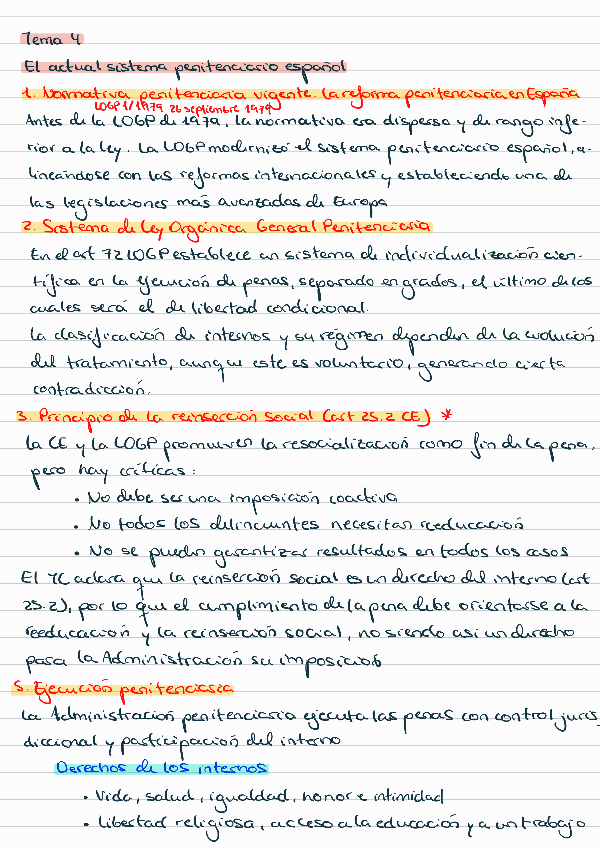 Tema 4
El actual sistema penitenciario español
1. Normativa penitenciaria vigente. La reforma penitenciaria en España
LOGP 1/1979 26 septiembre 1979
Antes de la LOGP de 1979, la normativa era dispersa y de rango infe-
rior a la ley. La LOGP modernizó el sistema penitenciario español, a-
lineándose con las reformas internacionales y estableciendo una de
las legislaciones más avanzadas de Europa
2. Sistema de Ley Orgánica General Penitenciaria
En el art 72 LOGP establece un sistema de individualización cien-
tífica en la ejecución de penas, separado en grados, el último de los
cuales será el de libertad condicional.
La clasificación de internos y su régimen dependen de la evolución
del tratamiento, aunque este es voluntario, generando cierta
contradicción.
3. Principio de la reinserción social (art 25.2 CE) *
La CE y la LOGP promueven la resocialización como fin de la pena,
pero hay críticas:
• No debe ser una imposición coactiva
• No todos los delincuentes necesitan reeducación
• No se pueden garantizar resultados en todos los casos
El TC aclara que la reinserción social es un derecho del interno (art
25.2), por lo que el cumplimiento de la pena debe orientarse a la
reeducación y la reinserción social, no siendo así un derecho
para la Administración su imposición
5. Ejecución penitenciaria
La Administración penitenciaria ejecuta las penas con control juris
diccional y participación del interno
Derechos de los internos
• Vida, salud, igualdad, honor e intimidad
• Libertad religiosa, acceso a la educación y a un trabajo